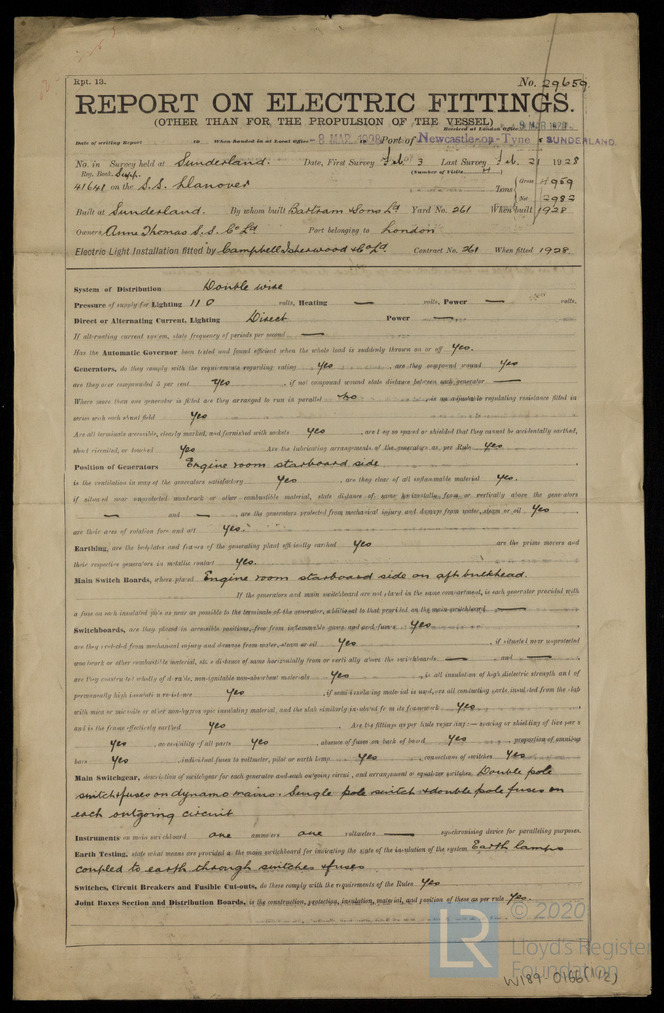 Rpt. 13.
No. 29659
REPORT ON ELECTRIC FITTINGS.
(OTHER THAN FOR THE PROPULSION OF THE VESSEL)
Received at London Office 9 MAR 1928
Date of writing Report 19 When handed in at Local Office 8 MAR. 1928 Port of Newcastle-on-Tyne & SUNDERLAND.
No. in Survey held at Sunderland. Date, First Survey Feb. 3 Last Survey Feb. 21 1928
Reg. Book. Supp. (Number of Visits 4)
41641 on the S.S. Llanover Tons { Gross 4959
Net 2982
Built at Sunderland. By whom built Bartram & Sons Ld Yard No. 261 When built 1928
Owners Anne Thomas S.S. Co Ld Port belonging to London
Electric Light Installation fitted by Campbell Isherwood & Co Ld. Contract No. 261 When fitted 1928.
System of Distribution Double wire
Pressure of supply for Lighting 110 volts, Heating — volts, Power — volts.
Direct or Alternating Current, Lighting Direct Power —
If alternating current system, state frequency of periods per second —
Has the Automatic Governor been tested and found efficient when the whole load is suddenly thrown on or off Yes.
Generators, do they comply with the requirements regarding rating Yes, are they compound wound Yes
are they over compounded 5 per cent. Yes, if not compound wound state distance between each generator —
Where more than one generator is fitted are they arranged to run in parallel No, is an adjustable regulating resistance fitted in
series with each shunt field Yes
Are all terminals accessible, clearly marked, and furnished with sockets Yes, are they so spaced or shielded that they cannot be accidentally earthed,
short circuited, or touched Yes Are the lubricating arrangements of the generators as per Rule Yes
Position of Generators Engine room starboard side
is the ventilation in way of the generators satisfactory Yes, are they clear of all inflammable material Yes.
if situated near unprotected woodwork or other combustible material, state distance of same horizontally from or vertically above the generators
— and —, are the generators protected from mechanical injury and damage from water, steam or oil Yes
are their axes of rotation fore and aft Yes.
Earthing, are the bedplates and frames of the generating plant efficiently earthed Yes are the prime movers and
their respective generators in metallic contact Yes.
Main Switch Boards, where placed Engine room starboard side on aft bulkhead.
If the generators and main switchboard are not placed in the same compartment, is each generator provided with
a fuse on each insulated pole as near as possible to the terminals of the generator, additional to that provided on the main switchboard —
Switchboards, are they placed in accessible positions, free from inflammable gases and acid fumes Yes
are they protected from mechanical injury and damage from water, steam or oil Yes, if situated near unprotected
woodwork or other combustible material, state distance of same horizontally from or vertically above the switchboards — and —
are they constructed wholly of durable, non-ignitable non-absorbent materials Yes, is all insulation of high dielectric strength and of
permanently high insulation resistance Yes, if semi-insulating material is used, are all conducting parts insulated from the slab
with mica or micanite or other non-hygroscopic insulating material, and the slab similarly insulated from its framework Yes
and is the frame effectively earthed Yes Are the fittings as per Rule regarding:— spacing or shielding of live parts
Yes, accessibility of all parts Yes, absence of fuses on back of board Yes, proportion of omnibus
bars Yes, individual fuses to voltmeter, pilot or earth lamp Yes, connections of switches Yes
Main Switchgear, description of switchgear for each generator and each outgoing circuit, and arrangement of equaliser switches. Double pole
switch & fuses on dynamo mains. Single pole switch & double pole fuses on
each outgoing circuit
Instruments on main switchboard one ammeters one voltmeters — synchronising device for paralleling purposes.
Earth Testing, state what means are provided at the main switchboard for indicating the state of the insulation of the system Earth lamps
coupled to earth through switches & fuses
Switches, Circuit Breakers and Fusible Cut-outs, do these comply with the requirements of the Rules Yes
Joint Boxes Section and Distribution Boards, is the construction, protection, insulation, material, and position of these as per rule Yes.
LR © 2020
Lloyd's Register
Foundation
W189-0166(1/2)